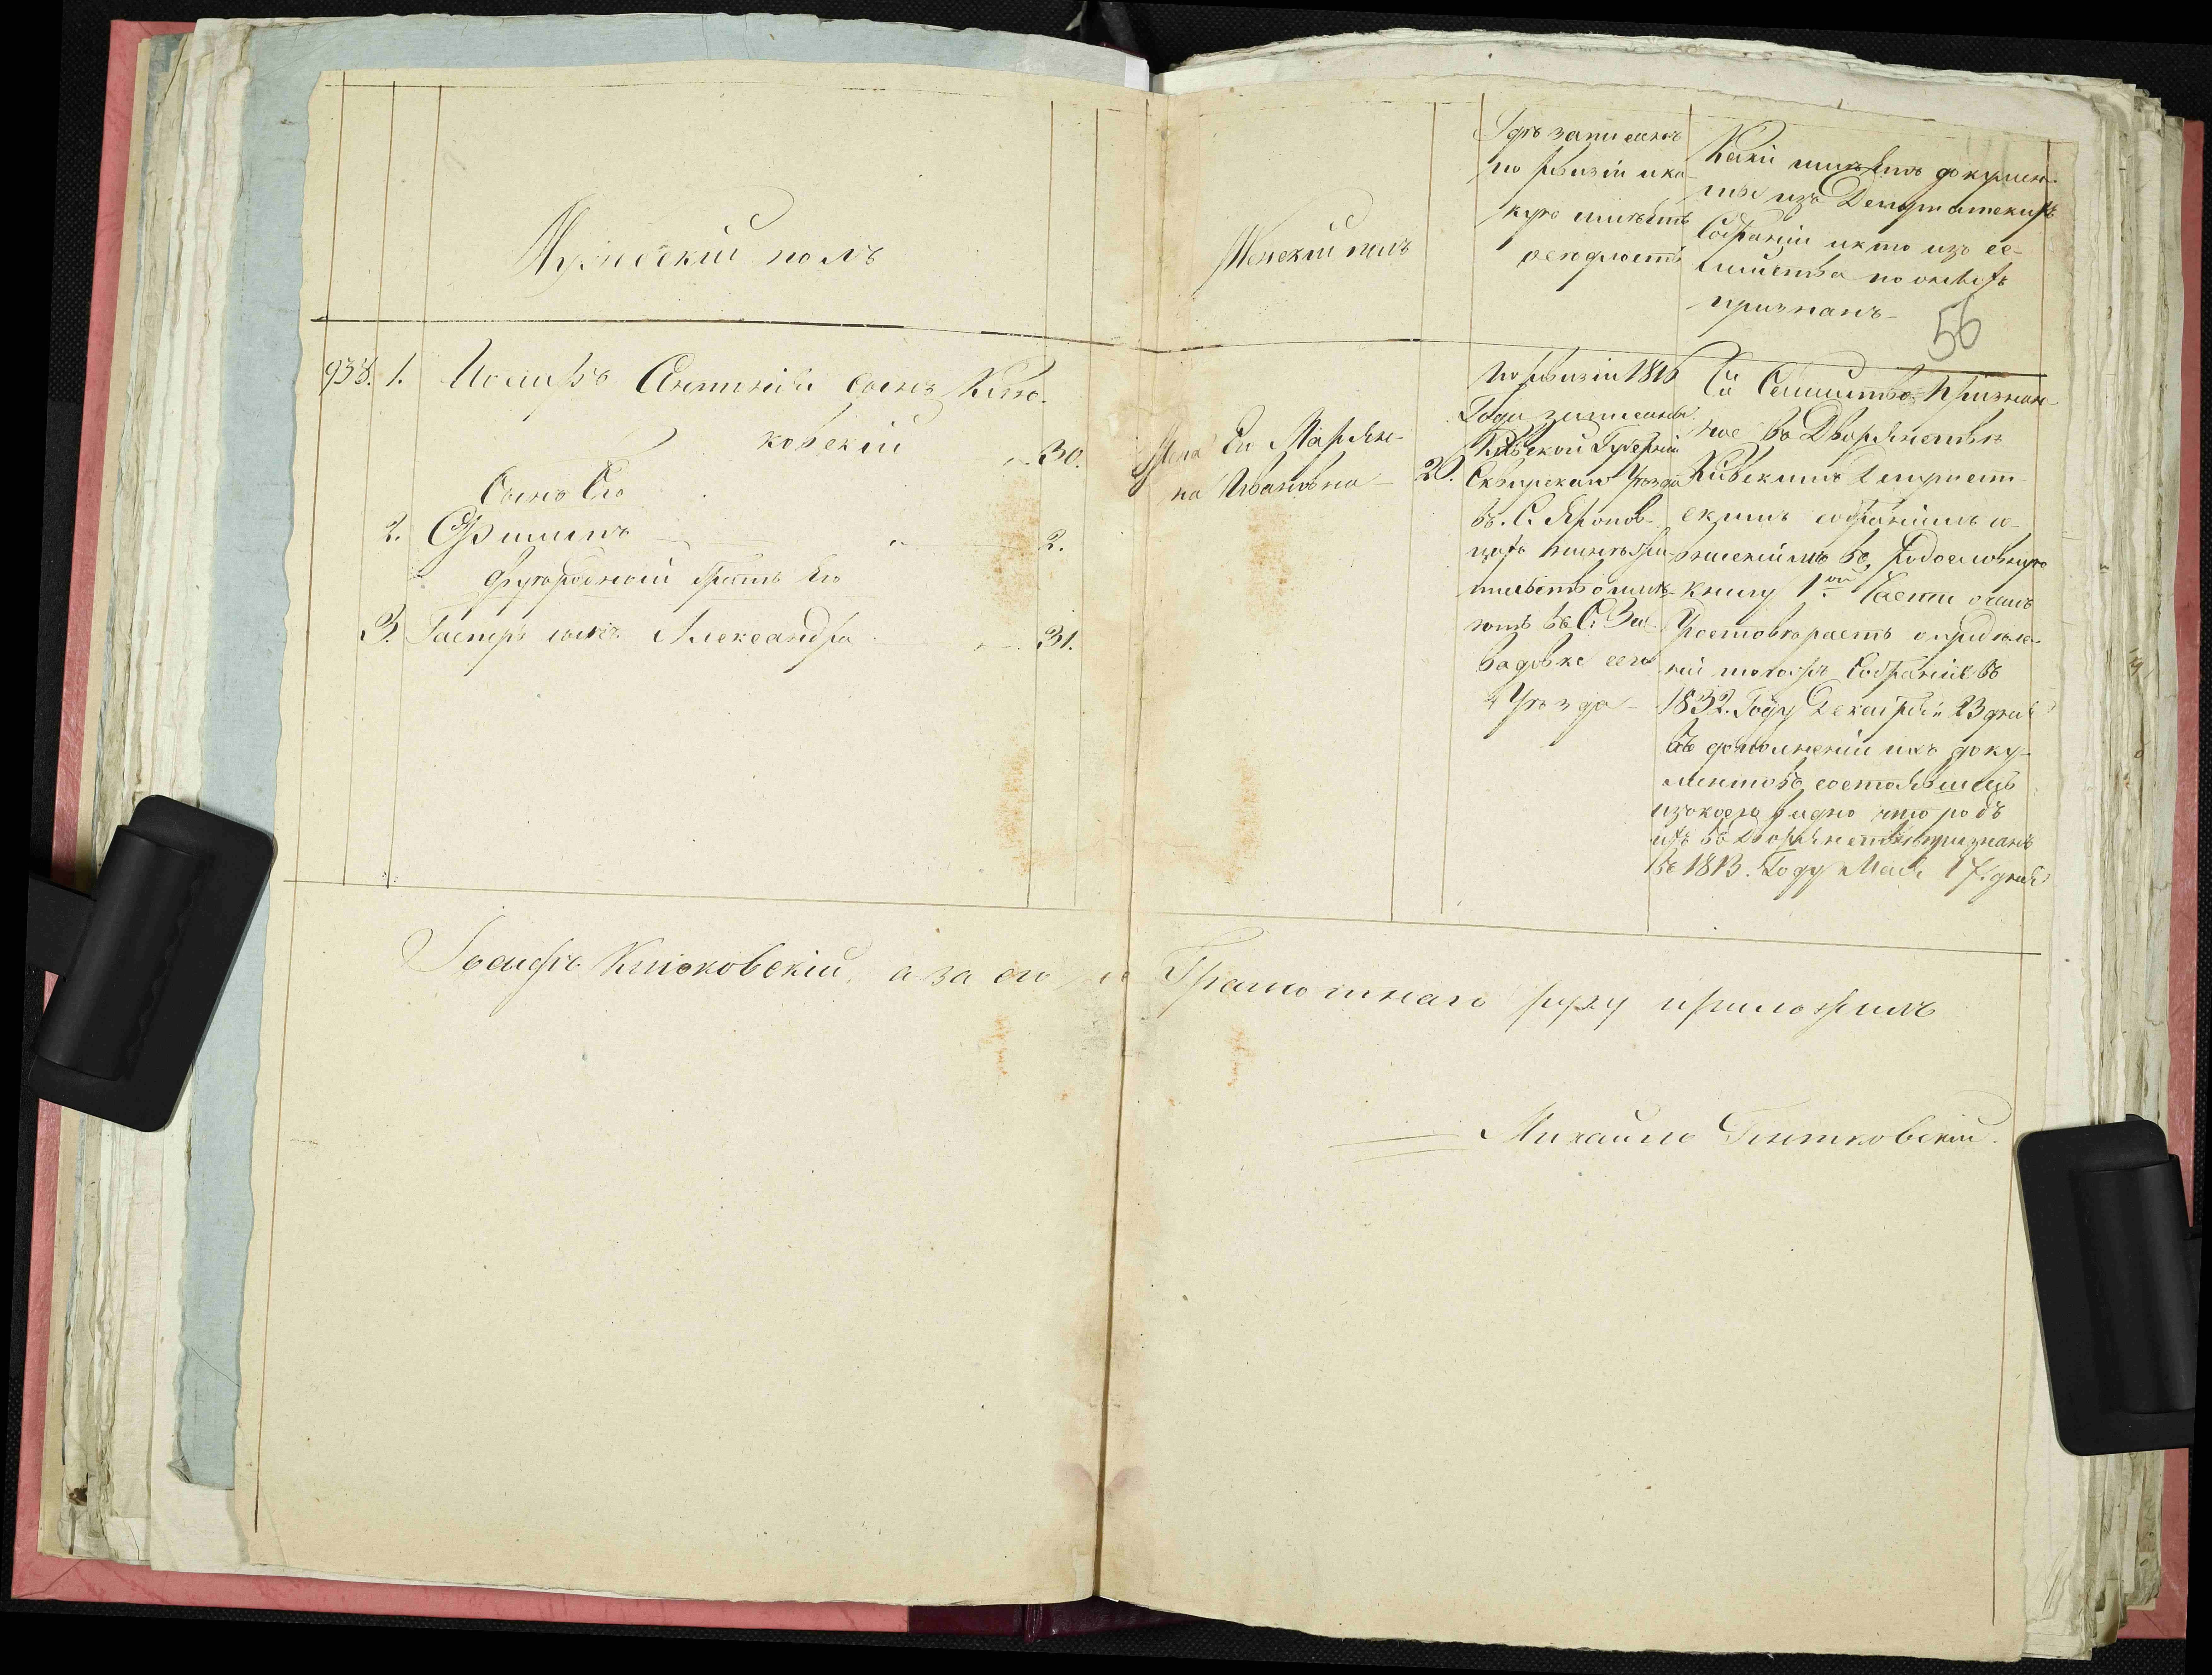 Мужеский полъ
Женский полъ
Гдѣ записанъ
по ревизіи и ка-
кую имѣетъ
оседлость
Какіи имѣетъ докумен-
ты изъ Депутатскихъ
Собраній и кто изъ се-
мейства по онымъ
признанъ
56
938. 1. Іосифъ Антоніевъ сынъ Кло-
ковскій 30.
Сынъ Его
2. Филипъ 2.
Двуюродной братъ Его
3. Гаспръ сынъ Александра 31.
Жена Ея Маріян-
на Ивановна 20.
По ревизіи 1816
Года записаны
Кіевской Губерніи
Сквирскаго Уѣзда
въ С. Яропов-
цахъ нынѣ жи-
тельство имѣ-
ютъ въ С. За-
вадовке сего
Уѣзда
Сіе Семейство Признан-
ное въ Дворянствѣ
Кіевскимъ Депутат-
скимъ собраніемъ со
внесеніемъ въ Родословную
книгу 1ой Части о чемъ
удостовѣряетъ опредѣле-
ній тогожъ Собраніе въ
1832. Году Декабря 23 дня
въ дополненіи ихъ доку-
ментовъ состоявшеесь
изъ коего видно что родъ
ихъ въ Дворянствѣ признанъ
въ 1813. Году Мая 17. дня
Іосифъ Клюковскій, а за его не Грамотнаго руку приложилъ
Михаилъ Гнятковскій.